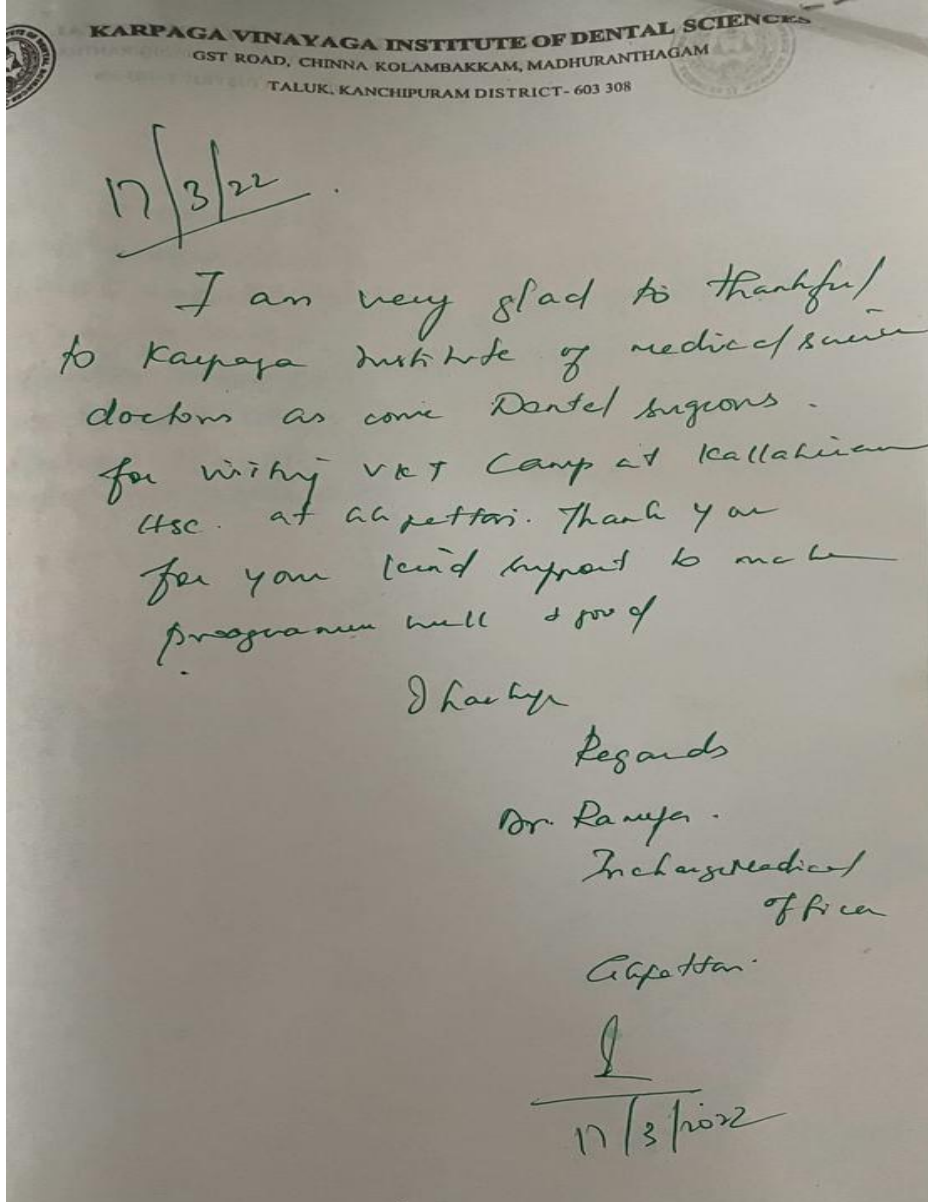 KARPAGA VINAYAGA INSTITUTE OF DENTAL SCIENCES
GST ROAD, CHINNA KOLAMBAKKAM, MADHURANTHAGAM
TALUK, KANCHIPURAM DISTRICT- 603 308
17/3/22.
I am very glad to thankful
to Karpaga Institute of medical science
doctors as Dental surgeons.
for VKT Camp at
HSC. at Thank you
for your kind support to make
programme well & good
Regards
Dr. Ramya.
Incharge Medical
officer
17/3/2022